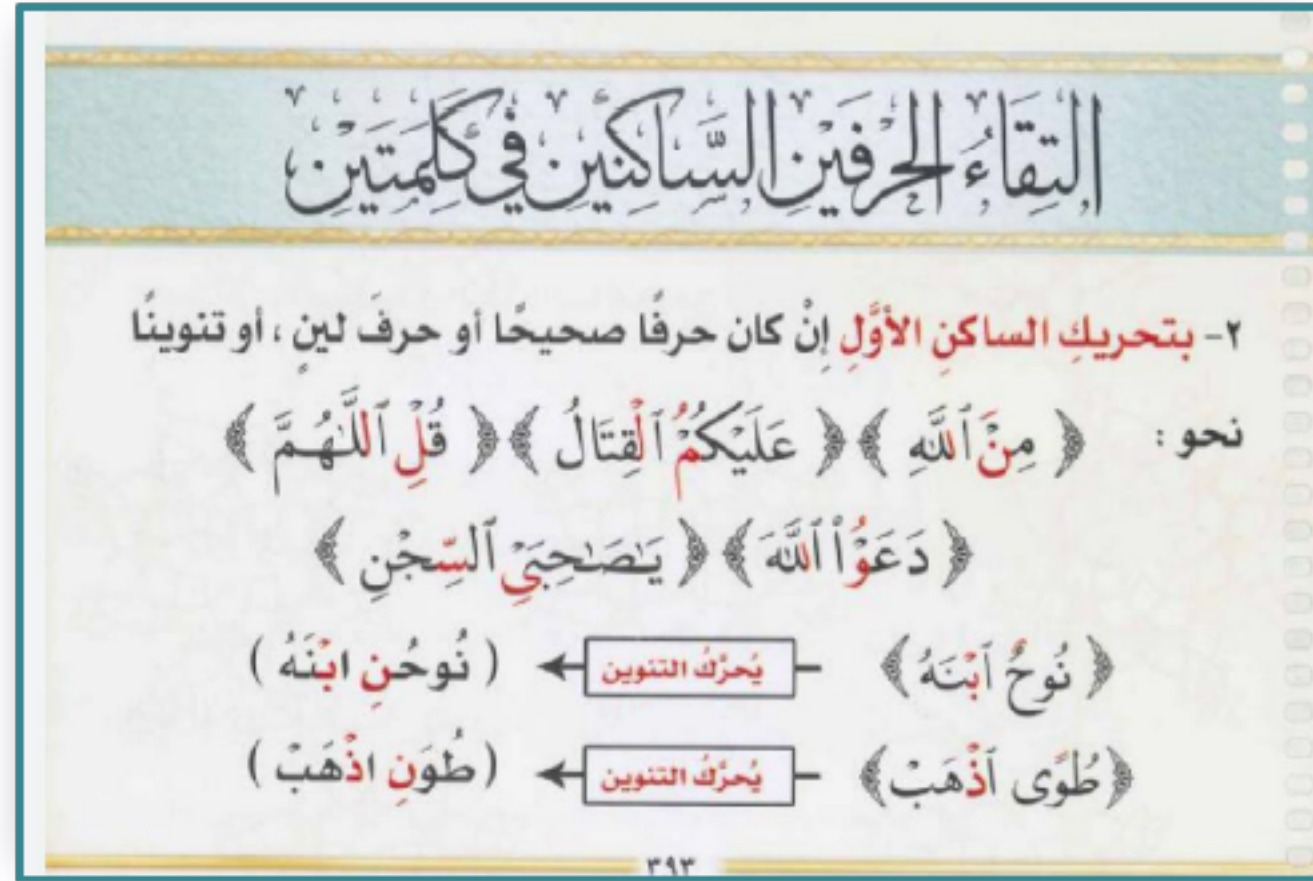 التِقَاءُ الحَرْفَيْنِ السَّاكِنَيْنِ فِي كَلِمَتَيْنِ
٢- بتحريكِ الساكنِ الأوَّلِ إنْ كان حرفًا صحيحًا أو حرفَ لينٍ ، أو تنوينًا
نحو : ﴿ مِنَ ٱللَّهِ ﴾ ﴿ عَلَيْكُمُ ٱلْقِتَالُ ﴾ ﴿ قُلِ ٱللَّهُمَّ ﴾
﴿ دَعَوُاْ ٱللَّهَ ﴾ ﴿ يَٰصَٰحِبَيِ ٱلسِّجْنِ ﴾
﴿ نُوحٌ ٱبْنَهُ ﴾ يُحرَّكُ التنوين ( نُوحُنِ ابْنَهُ )
﴿ طُوًى ٱذْهَبْ ﴾ يُحرَّكُ التنوين ( طُوَنِ اذْهَبْ )
٣٩٣